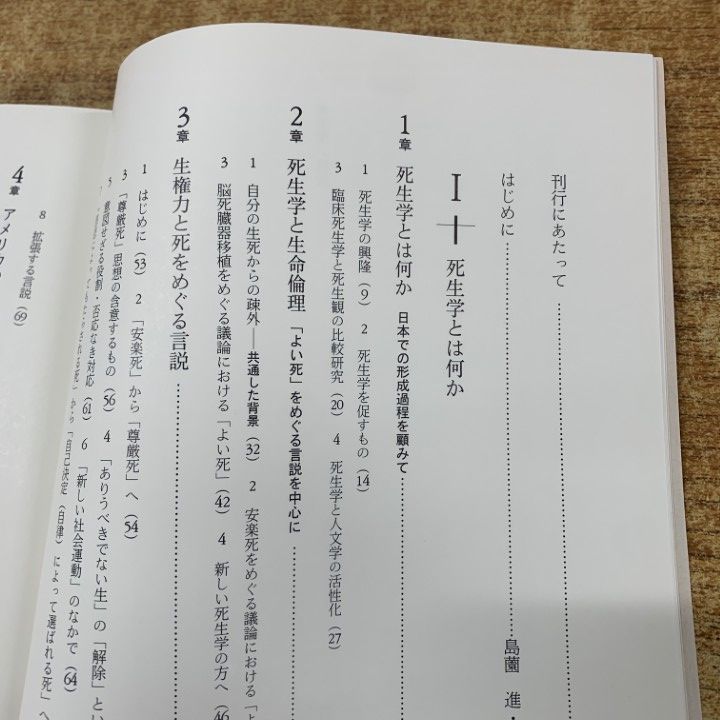 刊行にあたって
はじめに 島薗 進
I 死生学とは何か
1章 死生学とは何か 日本での形成過程を顧みて
1 死生学の興隆(9) 2 死生学を促すもの(14)
3 臨床死生学と死生観の比較研究(20) 4 死生学と人文学の活性化(27)
2章 死生学と生命倫理 「よい死」をめぐる言説を中心に
1 自分の生死からの疎外——共通した背景(32) 2 安楽死をめぐる議論における「よ
3 脳死臓器移植をめぐる議論における「よい死」(42) 4 新しい死生学の方へ(46
3章 生権力と死をめぐる言説
1 はじめに(53) 2 「安楽死」から「尊厳死」へ(54)
3 「尊厳死」思想の含意するもの(56) 4 「ありうべきでない生」の「解除」とい
5 意図せざる役割・否応なき対応(61) 6 「新しい社会運動」のなかで(64)
される死」から「自己決定(自律)によって選ばれる死」へ
8 拡張する言説(69)
4章 アメリカ